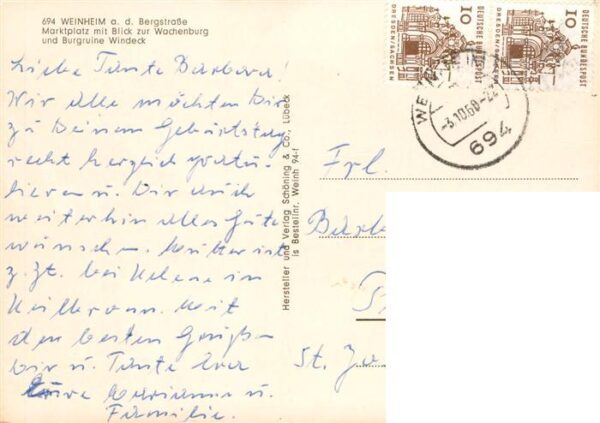 694 WEINHEIM a. d. Bergstraße
Marktplatz mit Blick zur Wachenburg
und Burgruine Windeck
Liebe Tante Barbara!
Wir alle möchten Dir
zu Deinem Geburtstag
recht herzlich gratu-
lieren u. Dir auch
weiterhin alles Gute
wünschen. Mutter ist
z. Zt. bei Helene in
Heilbronn. Mit
den besten Grüßen
Dir u. Tante Eva
Eure Marianne u.
Familie.
Hersteller und Verlag Schöning & Co., Lübeck
is Bestellnr. Weinh 94-f
DEUTSCHE BUNDESPOST
10
DRESDEN/SACHSEN
DEUTSCHE BUNDESPOST
10
DRESDEN/SACHSEN
WE
-3.10.68-22
694
Frl.
Barba
St. Jo